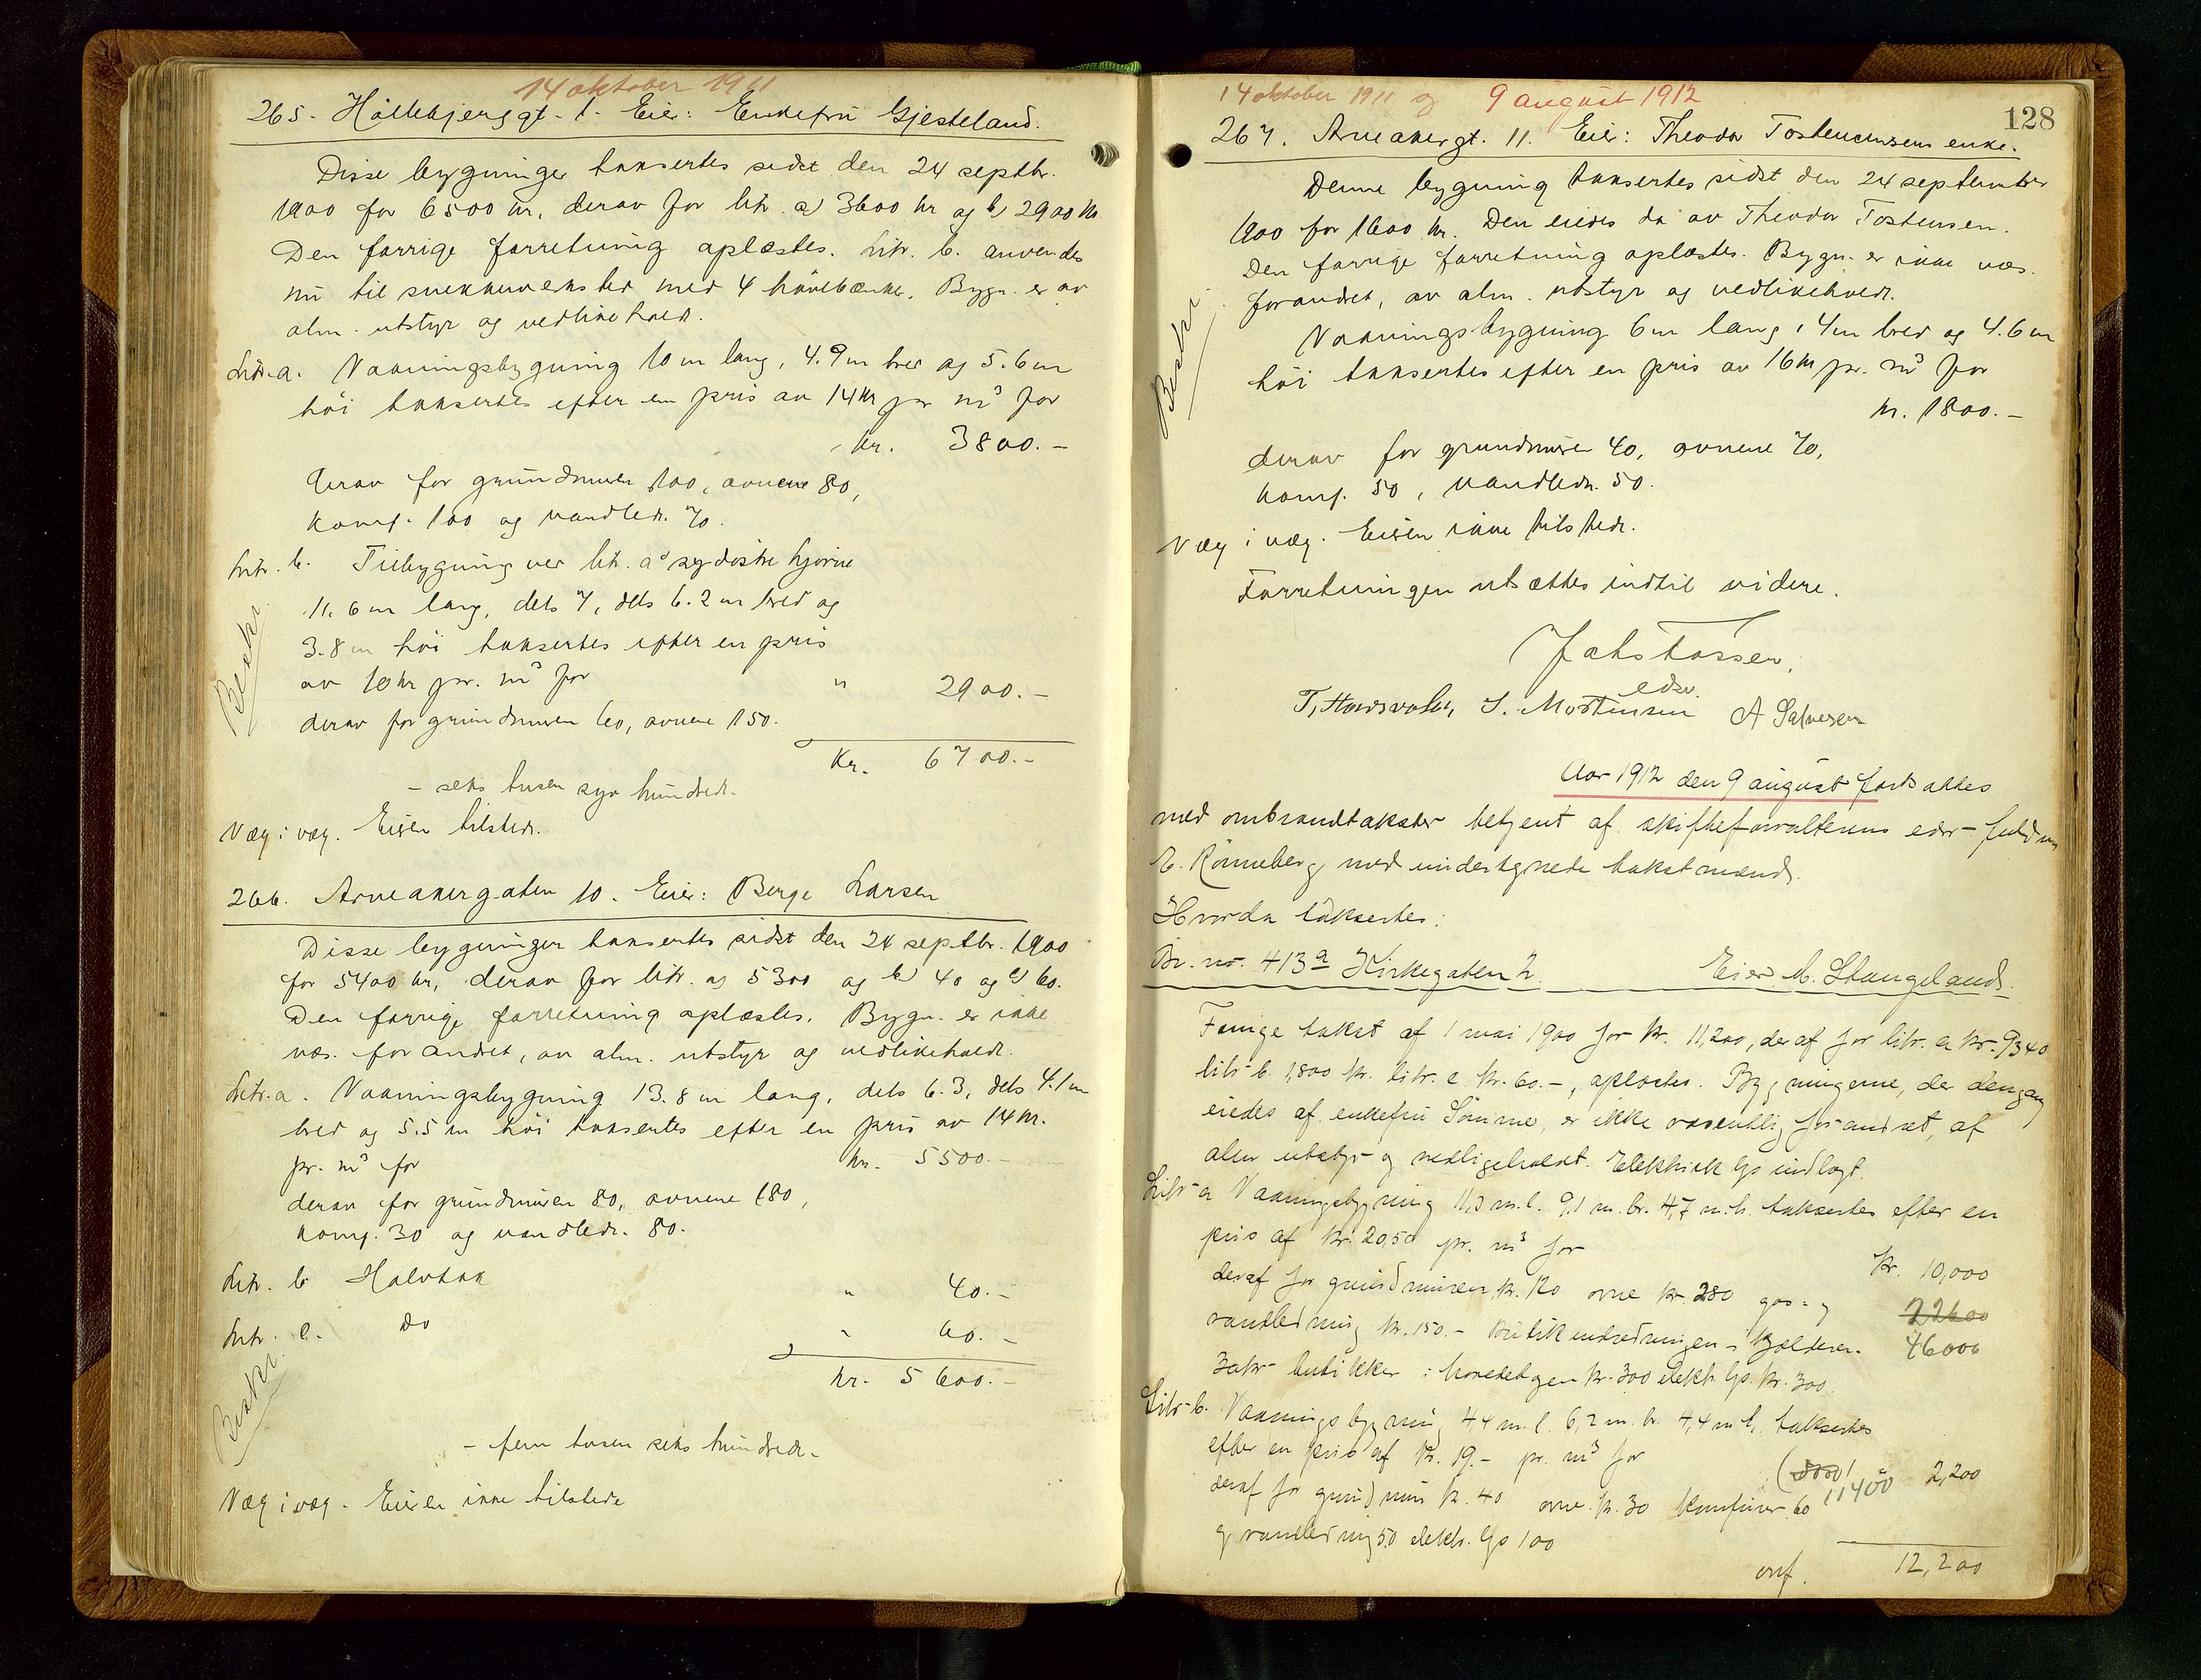 14 oktober 1911
265. Höllebjergsgt. 1. Eier: Enkefru Gjesteland.
Disse bygninger taksertes sidst den 24 septbr.
1900 for 6500 kr, derav for litr. a) 3600 kr og b) 2900 kr
Den forrige forretning oplæstes. Litr. b. anvendes
nu til snekkerverksted med 4 hövlebænke. Bygn. er av
alm. utstyr og vedlikehold.
Litr. a. Vaaningsbygning 10 m lang, 4.9 m bred og 5.6 m
höi taksertes efter en pris av 14 kr pr m³ for
kr. 3800.-
derav for grundmuren 100, ovnene 80,
komf. 100 og vandledn. 70.
Litr. b. Tilbygning ved litr. a's sydöstre hjörne
11.6 m lang, dels 7, dels 6.2 m bred og
3.8 m höi taksertes efter en pris
av 10 kr pr. m³ for " 2900.-
derav for grundmuren 60, ovnene 150.
Kr. 6700.-
- seks tusen syv hundrede.
Væg i væg. Eieren tilstede.
266. Arneakergaten 10. Eier: Berge Larsen
Disse bygninger taksertes sidst den 24 septbr. 1900
for 5400 kr, derav for litr. a) 5300 og b) 40 og c) 60.
Den forrige forretning oplæstes. Bygn. er ikke
væs. forandret, av alm. utstyr og vedlikehold.
Litr. a. Vaaningsbygning 13.8 m lang, dels 6.3, dels 4.1 m
bred og 5.5 m höi taksertes efter en pris av 14 kr.
pr. m³ for kr. 5500.-
derav for grundmuren 80, ovnene 180,
komf. 30 og vandledn. 80.
Litr. b Halvtak " 40.-
Litr. c. Do " 60.-
kr. 5600.-
- fem tusen seks hundrede.
Væg i væg. Eieren ikke tilstede
14 oktober 1911 og 9 august 1912
128
267. Arneakergt. 11. Eier: Theodor Tostensens enke.
Denne bygning taksertes sidst den 24 september
1900 for 1600 kr. Den eiedes da av Theodor Tostensen.
Den forrige forretning oplæstes. Bygn. er ikke væs.
forandret, av alm. utstyr og vedlikehold.
Vaaningsbygning 6 m lang, 4 m bred og 4.6 m
höi taksertes efter en pris av 16 kr pr. m³ for
kr. 1800.-
derav for grundmuren 40, ovnene 70,
komf. 50, vandledn. 50.
Væg i væg. Eieren ikke tilstede.
Forretningen utsættes indtil videre.
edsv.
T. S. Mortensen A Salvesen
Aar 1912 den 9 august fortsattes
med ombrandtakster betjent af skifteforvalterens edsv. fuldm
E. Rönneberg med undertegnede takstmænd.
Hvorda taksertes:
Br. no. 413a Kirkegaten 2. Eier M. Stangeland.
Forrige takst af 1 mai 1900 for kr. 11,200, deraf for litr. a kr. 9340
litr. b. 1,800 kr. litr. c kr. 60.-, oplæstes. Bygningerne, der dengang
eiedes af enkefru Sömme, er ikke væsentlig forandret, af
alm utstyr og vedligehold. Elektrisk lys indlagt.
Litr a Vaaningsbygning 11,3 m.l. 9,1 m. br. 4,7 m.h. taksertes efter en
pris af kr. 20,50 pr. m³ for kr. 10,000
deraf for grundmuren kr. 120 ovne kr. 280 gas- og 22600
vandledning kr. 150.- Butikindredningen i kjelderen 46000
butikker i hovedetagen kr. 300 elektr. lys kr. 300.
Litr b. Vaaningsbygning 4,4 m.l. 6,2 m. br. 4,4 m h. taksertes
efter en pris af kr. 19.- pr. m³ for 2,200
deraf for grundmur kr. 40 ovne kr. 30 komfurer 60 11400
og vandledning 50 elektr. lys 100
ovf. 12,200